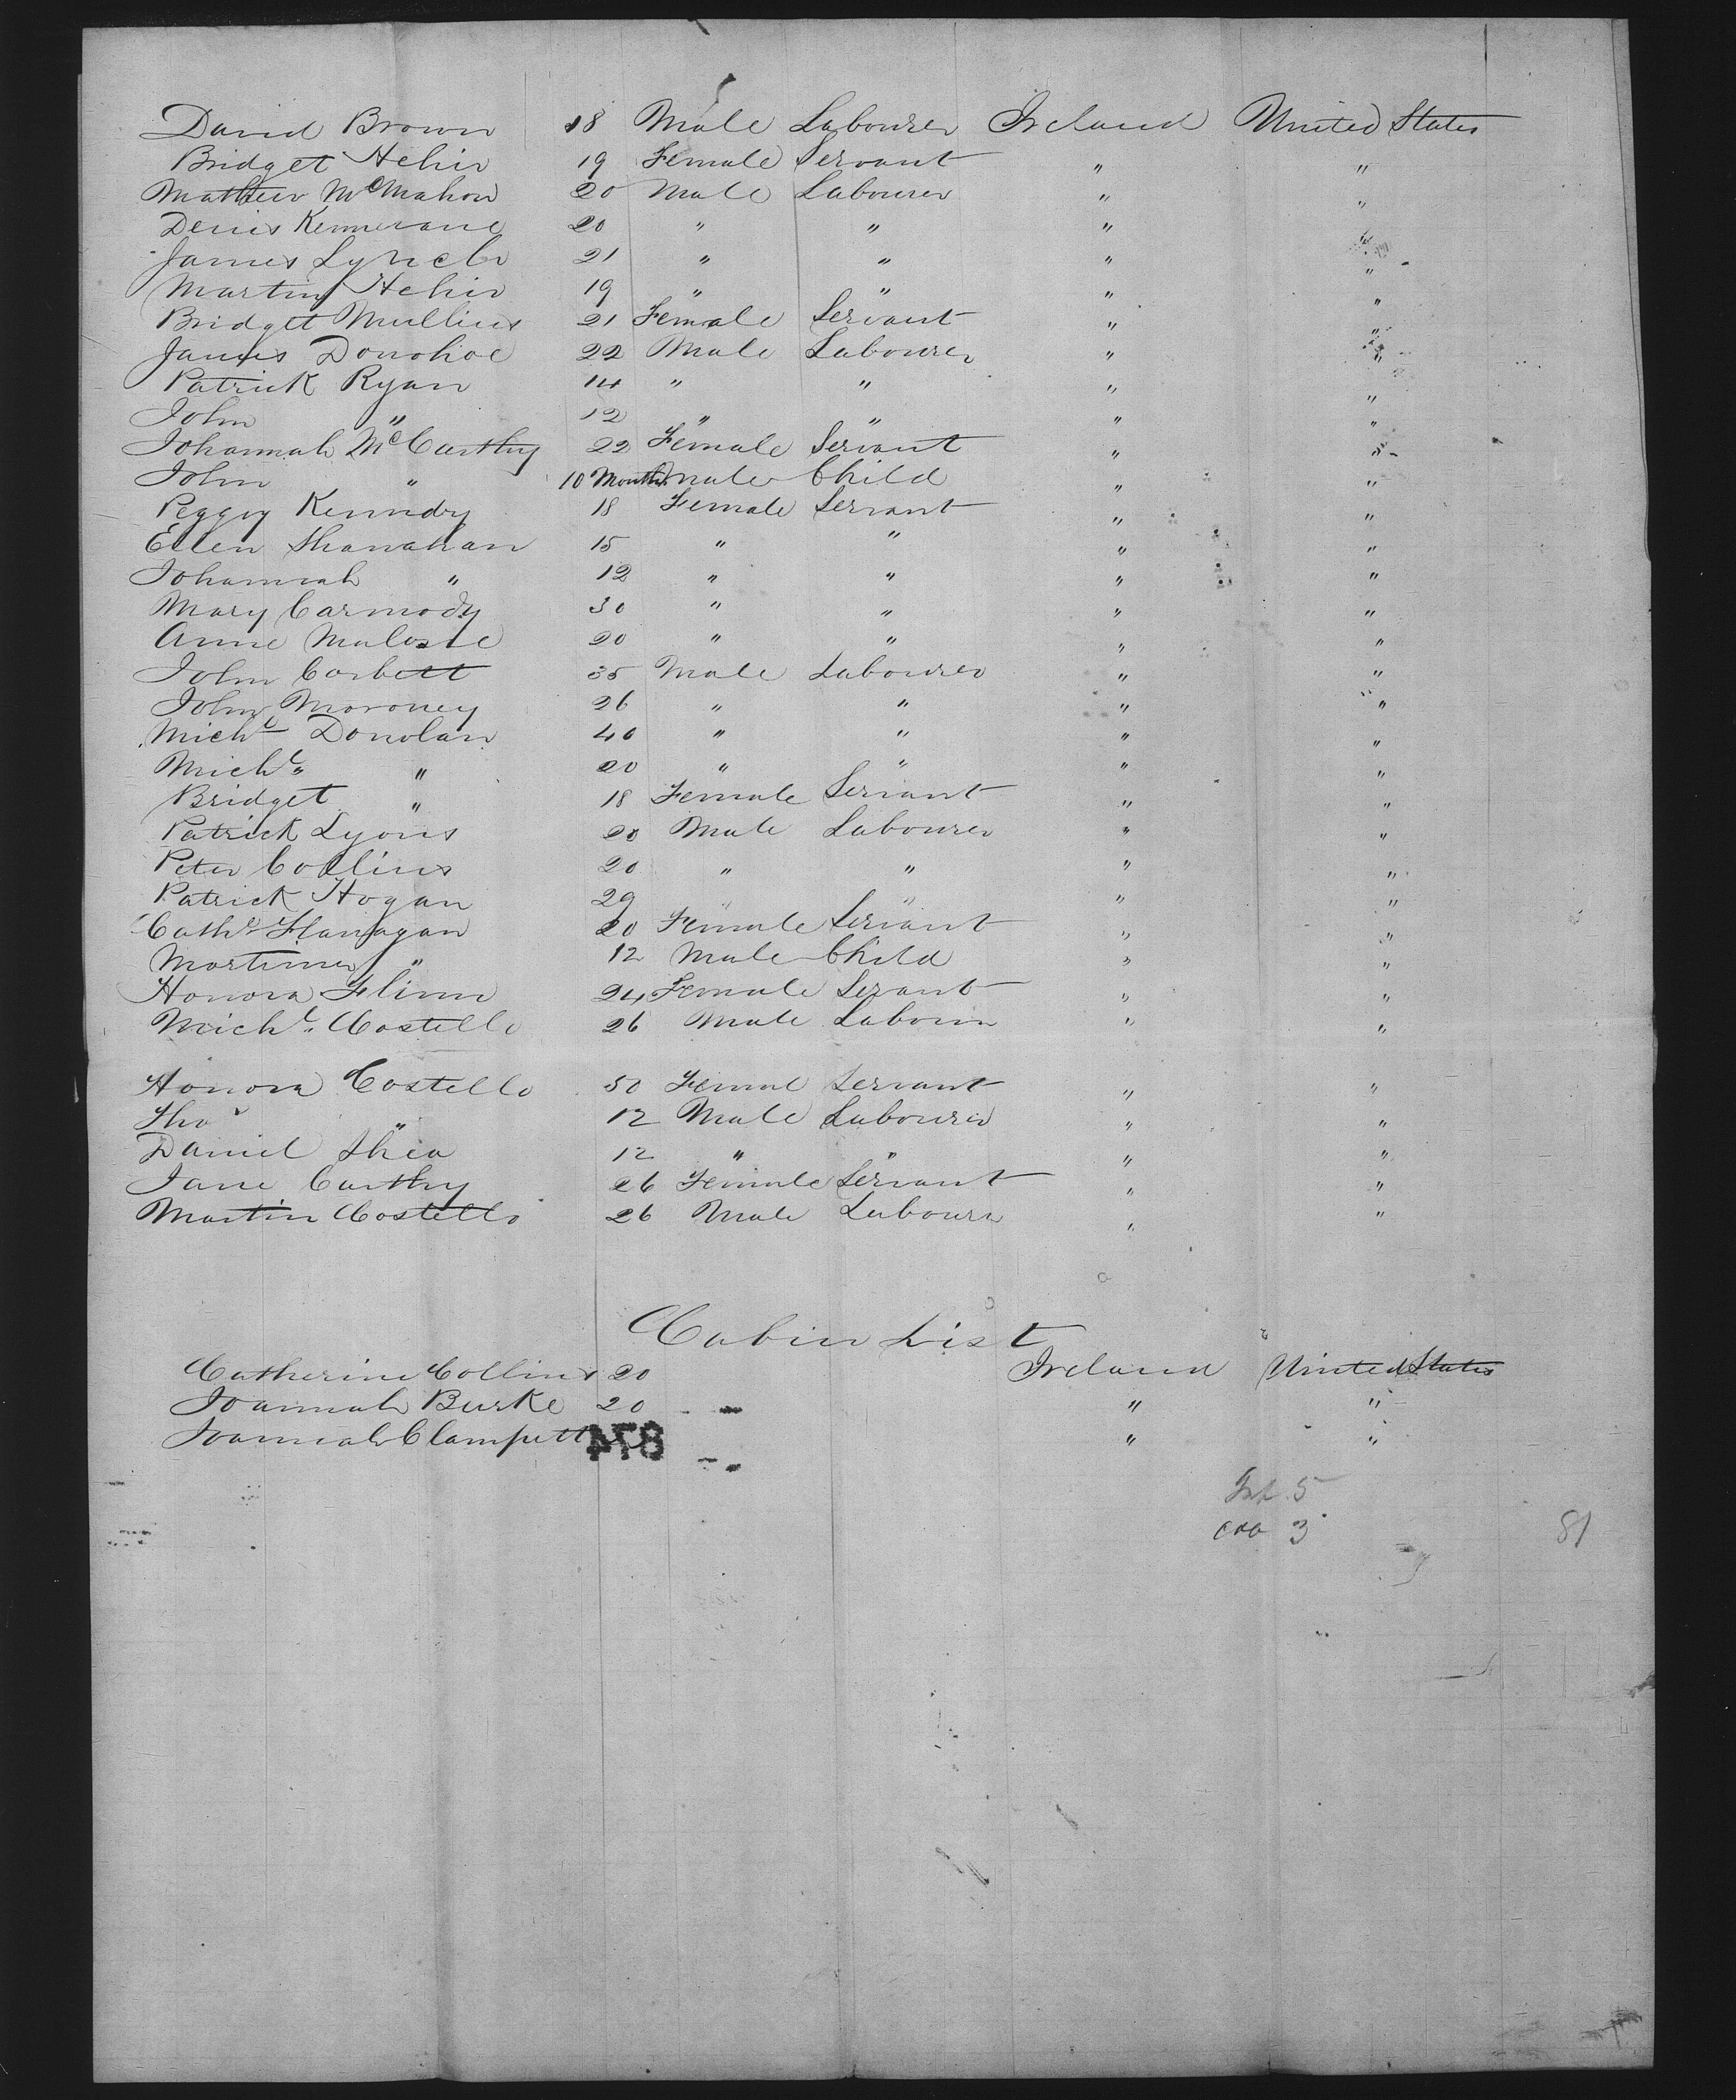 David Brown 18 Male Labourer Ireland United States
Bridget Hehir 19 Female Servant " "
Matthew McMahon 20 Male Labourer " "
Denis Kennerane 20 " " " "
James Lynch 21 " " " "
Martin Hehir 19 " " " "
Bridgett Mullins 21 Female Servant " "
James Donohoe 22 Male Labourer " "
Patrick Ryan 14 " " " "
John " 12 " " " "
Johannah McCarthy 22 Female Servant " "
John " 10 Months male Child " "
Peggy Kennedy 18 Female Servant " "
Ellen Shanahan 15 " " " "
Johannah " 12 " " " "
Mary Carmody 30 " " " "
Anne 20 " " " "
John Corbett 35 Male Labourer " "
John Moroney 26 " " " "
Michl Donolan 40 " " " "
Michl " 20 " " " "
Bridget " 18 Female Servant " "
Patrick Lyons 20 Male Labourer " "
Peter Collins 20 " " " "
Patrick Hogan 29 " " " "
Cathe Flanagan 20 Female Servant " "
Mortimer " 12 Male Child " "
Honora Flinn 24 Female Servant " "
Michl. Costello 26 Male Labourer " "
Honora Costello 50 Female Servant " "
Thos " 12 Male Labourer " "
Daniel Shea 12 " " " "
Jane Carthy 26 Female Servant " "
Martin Costello 26 Male Labourer " "
Cabin List
Catherine Collins 20 Ireland United States
Joannah Burke 20 " "
Joannah Clampett " "
874
Inf. 5
cab 3
81